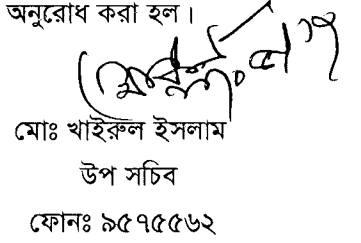 অনুরোধ করা হল।
মোঃ খাইরুল ইসলাম
উপ সচিব
ফোনঃ ৯৫৭৫৫৬২